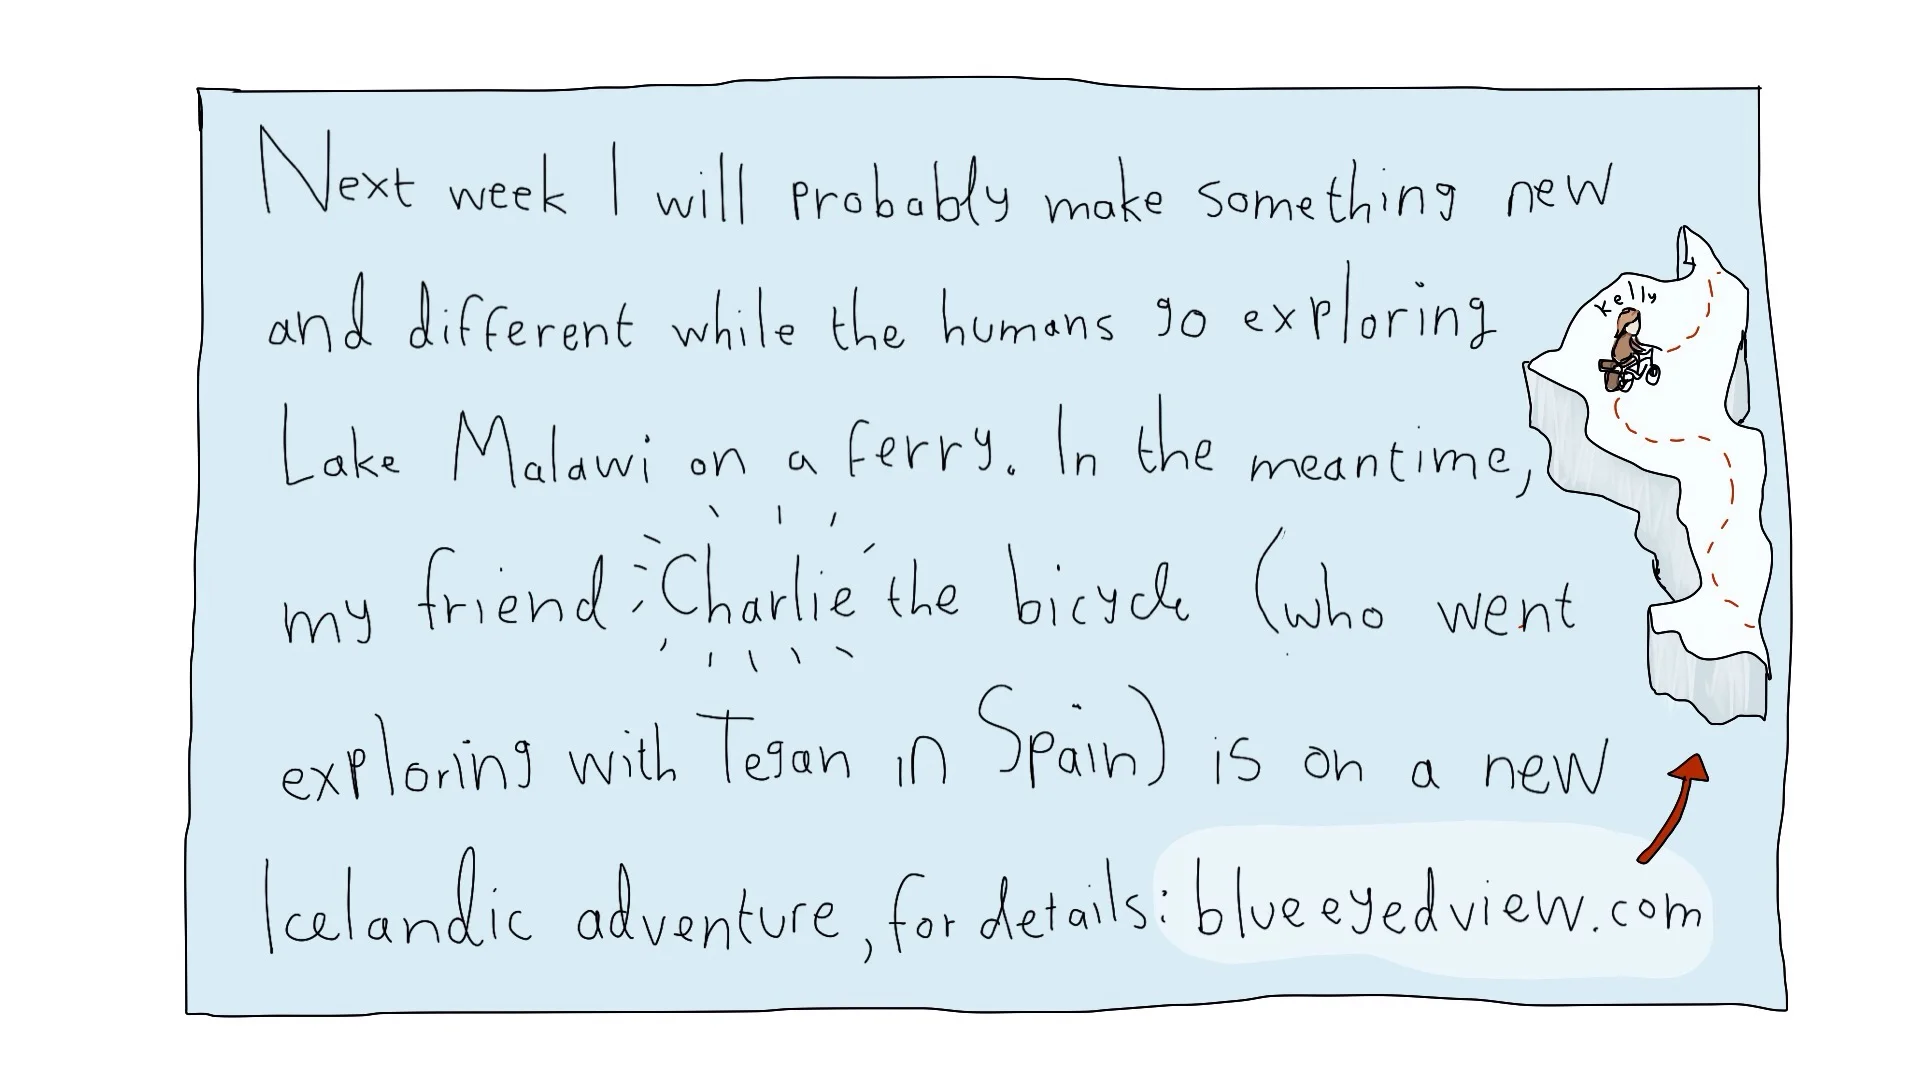 Next week I will probably make something new
and different while the humans go exploring
Kelly
Lake Malawi on a ferry. In the meantime,
my friend Charlie the bicycle (who went
exploring with Tegan in Spain) is on a new
Icelandic adventure, for details: blueeyedview.com